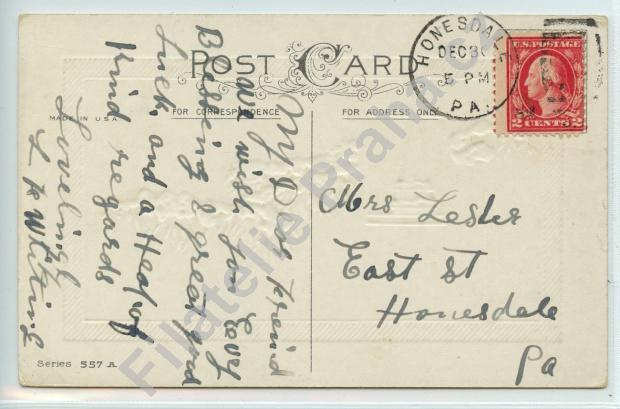 POST CARD
FOR CORRESPONDENCE
FOR ADDRESS ONLY
MADE IN U.S.A.
HONESDALE
DEC 30
5 PM
PA.
U.S.POSTAGE
2 CENTS 2
My Dear Freind
We wish you Evry
Blessing & great good
Luck, and a Heap of
Kind regards
Lovelingly
Mrs Lesher
East St
Honesdale
Pa
Series 557 A.
Filatelie Praha